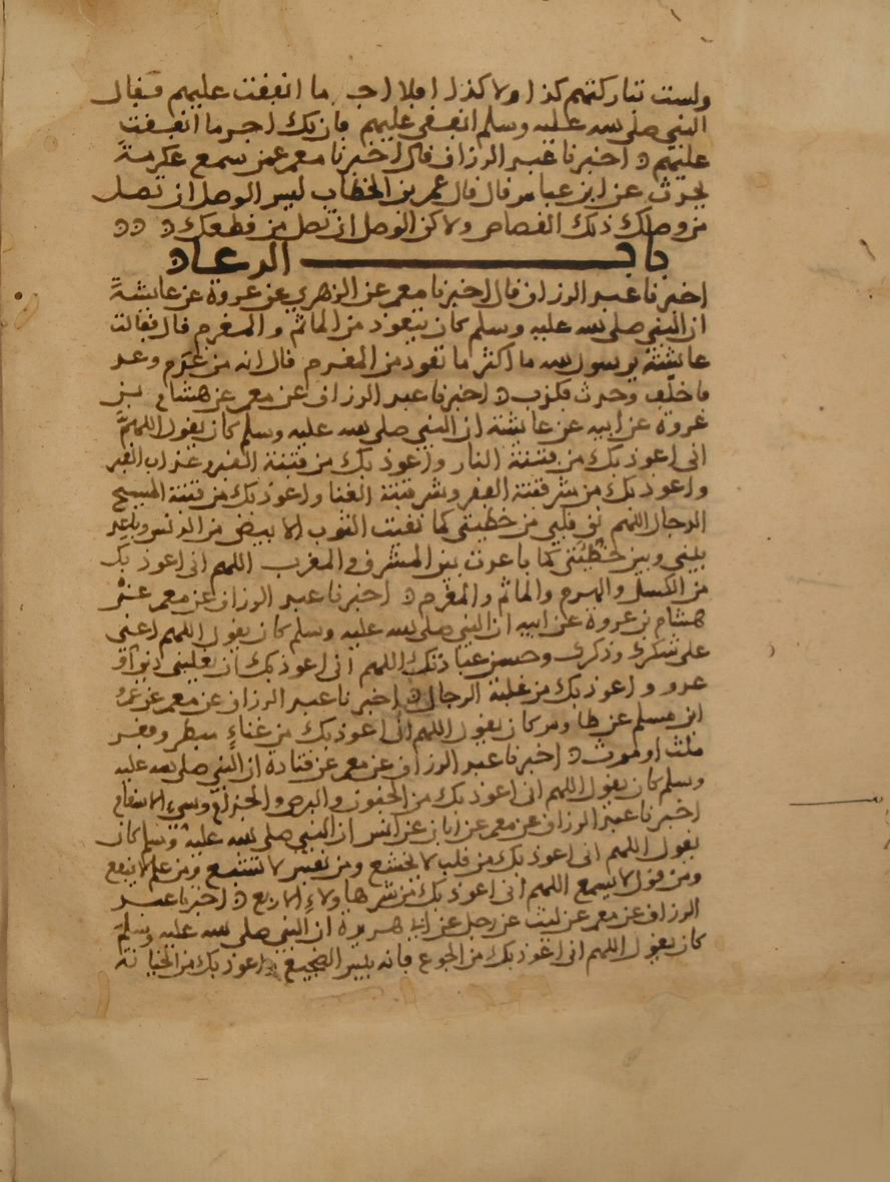 ولست بتاركتهم كذا ولا كذا افلي اجر ما انفقت عليهم فقال
النبي صلى الله عليه وسلم انفقي عليهم فان لك اجر ما انفقت
عليهم اخبرنا عبد الرزاق قال اخبرنا معمر عمن سمع عكرمة
يحدث عن ابن عباس قال قال عمر بن الخطاب ليس الوصل ان تصل
من وصلك ذلك القصاص ولاكن الوصل ان تصل من قطعك
باب الدعاء
اخبرنا عبد الرزاق قال اخبرنا معمر عن الزهري عن عروة عن عائشة
ان النبي صلى الله عليه وسلم كان يتعوذ من الماثم والمغرم قال فقالت
عائشة يرسول الله ما اكثر ما تعوذ من المغرم قال انه من غرم وعد
فاخلف وحدث فكذب اخبرنا عبد الرزاق عن معمر عن هشام بن
عروة عن ابيه عن عائشة ان النبي صلى الله عليه وسلم كان يقول اللهم
اني اعوذ بك من فتنة النار واعوذ بك من فتنة القبر وعذاب القبر
واعوذ بك من شر فتنة الفقر وشر فتنة الغنا واعوذ بك من فتنة المسيح
الدجال اللهم نق قلبي من خطيتي كما نقيت الثوب الابيض من الدنس وباعد
بيني وبين خطيتي كما باعدت بين المشرق والمغرب اللهم اني اعوذ بك
من الكسل والهرم والماثم والمغرم اخبرنا عبد الرزاق عن معمر عن
هشام بن عروة عن ابيه ان النبي صلى الله عليه وسلم كان يقول اللهم اعني
على شكرك وذكرك وحسن عبادتك اللهم اني اعوذ بك ان يغلبني دين او
عدو واعوذ بك من غلبة الرجال اخبرنا عبد الرزاق عن معمر عن عمرو
ابن مسلم عن طاوس كان يقول اللهم اني اعوذ بك من غناء مبطر وفقر
ملث او اخبرنا عبد الرزاق عن معمر عن قتادة ان النبي صلى الله عليه
وسلم كان يقول اللهم اني اعوذ بك من الجنون والبرص والجذام وسيء الاسقام
اخبرنا عبد الرزاق عن معمر عن ابان عن انس ان النبي صلى الله عليه وسلم كان
يقول اللهم اني اعوذ بك من قلب لا يخشع ومن نفس لا تشبع ومن علم لا ينفع
ومن قول لا يسمع اللهم اني اعوذ بك من شر هاولاء الاربع اخبرنا عبد
الرزاق عن معمر عن ليث عن رجل عن ابي هريرة ان النبي صلى الله عليه وسلم
كان يقول اللهم اني اعوذ بك من الجوع فانه بيس الضجيع واعوذ بك من الخيانة